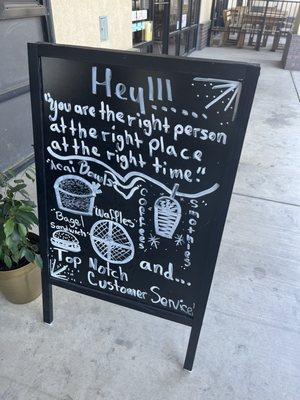 Hey!!!......
"you are the right person
at the right place
at the right time."
Acai Bowls
Bagel
Sandwich
Waffles
Coffees
Smoothies
and...
Top Notch
Customer Service